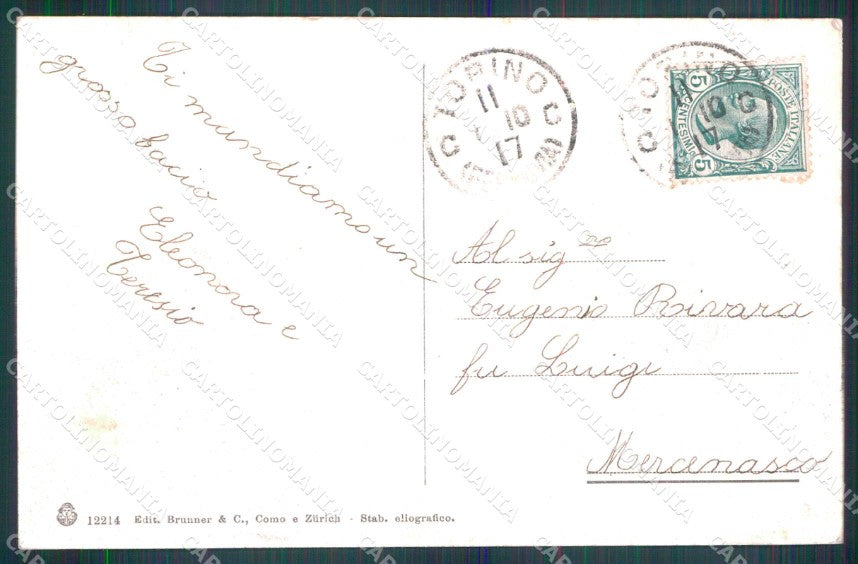 Ti mandiamo un
grosso bacio
Eleonora e
Teresio
TORINO
11
10
17
TORINO
11
10
17
POSTE ITALIANE
CENTESIMI
5
5
Al sig.no
Eugenio Rivara
fu Luigi
Mercenasco
12214 Edit. Brunner & C., Como e Zürich - Stab. eliografico.
CARTOLINOMANIA